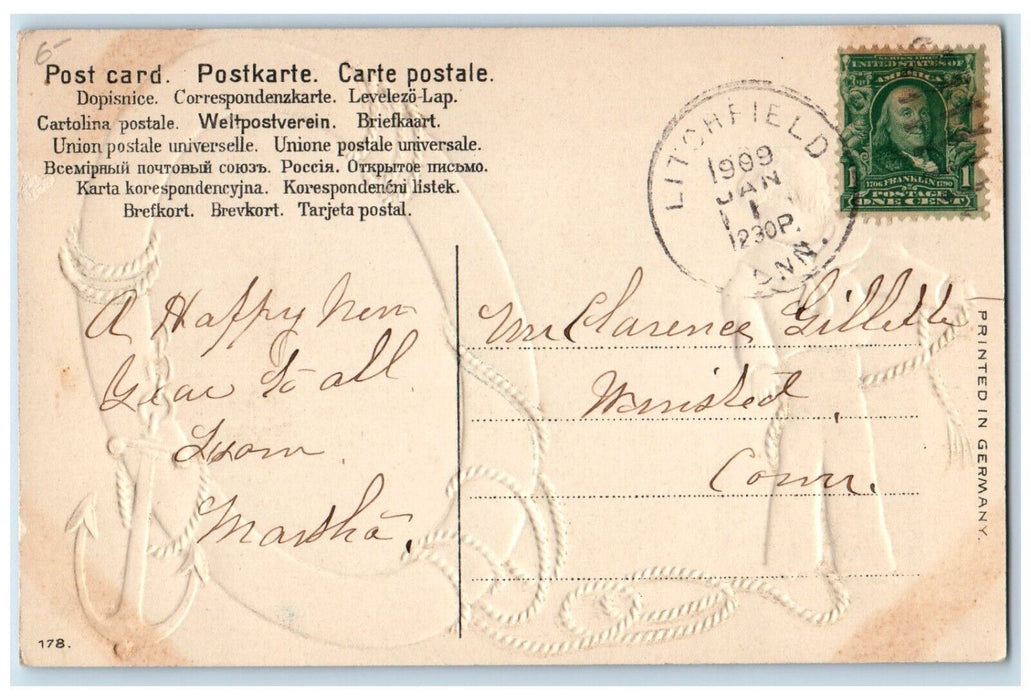 6-
Post card. Postkarte. Carte postale.
Dopisnice. Correspondenzkarte. Levelezö-Lap.
Cartolina postale. Weltpostverein. Briefkaart.
Union postale universelle. Unione postale universale.
Всемірный почтовый союзъ. Россія. Открытое письмо.
Karta korespondencyjna. Korespondenční listek.
Brefkort. Brevkort. Tarjeta postal.
LITCHFIELD
1909
JAN
1
1230P.
CONN.
SERIES 1902
UNITED STATES OF
AMERICA
1706 FRANKLIN 1790
1 POSTAGE 1
ONE CENT
A Happy New
Year to all
From
Martha.
Mr Clarence Gillette
Winsted,
Conn.
PRINTED IN GERMANY.
178.